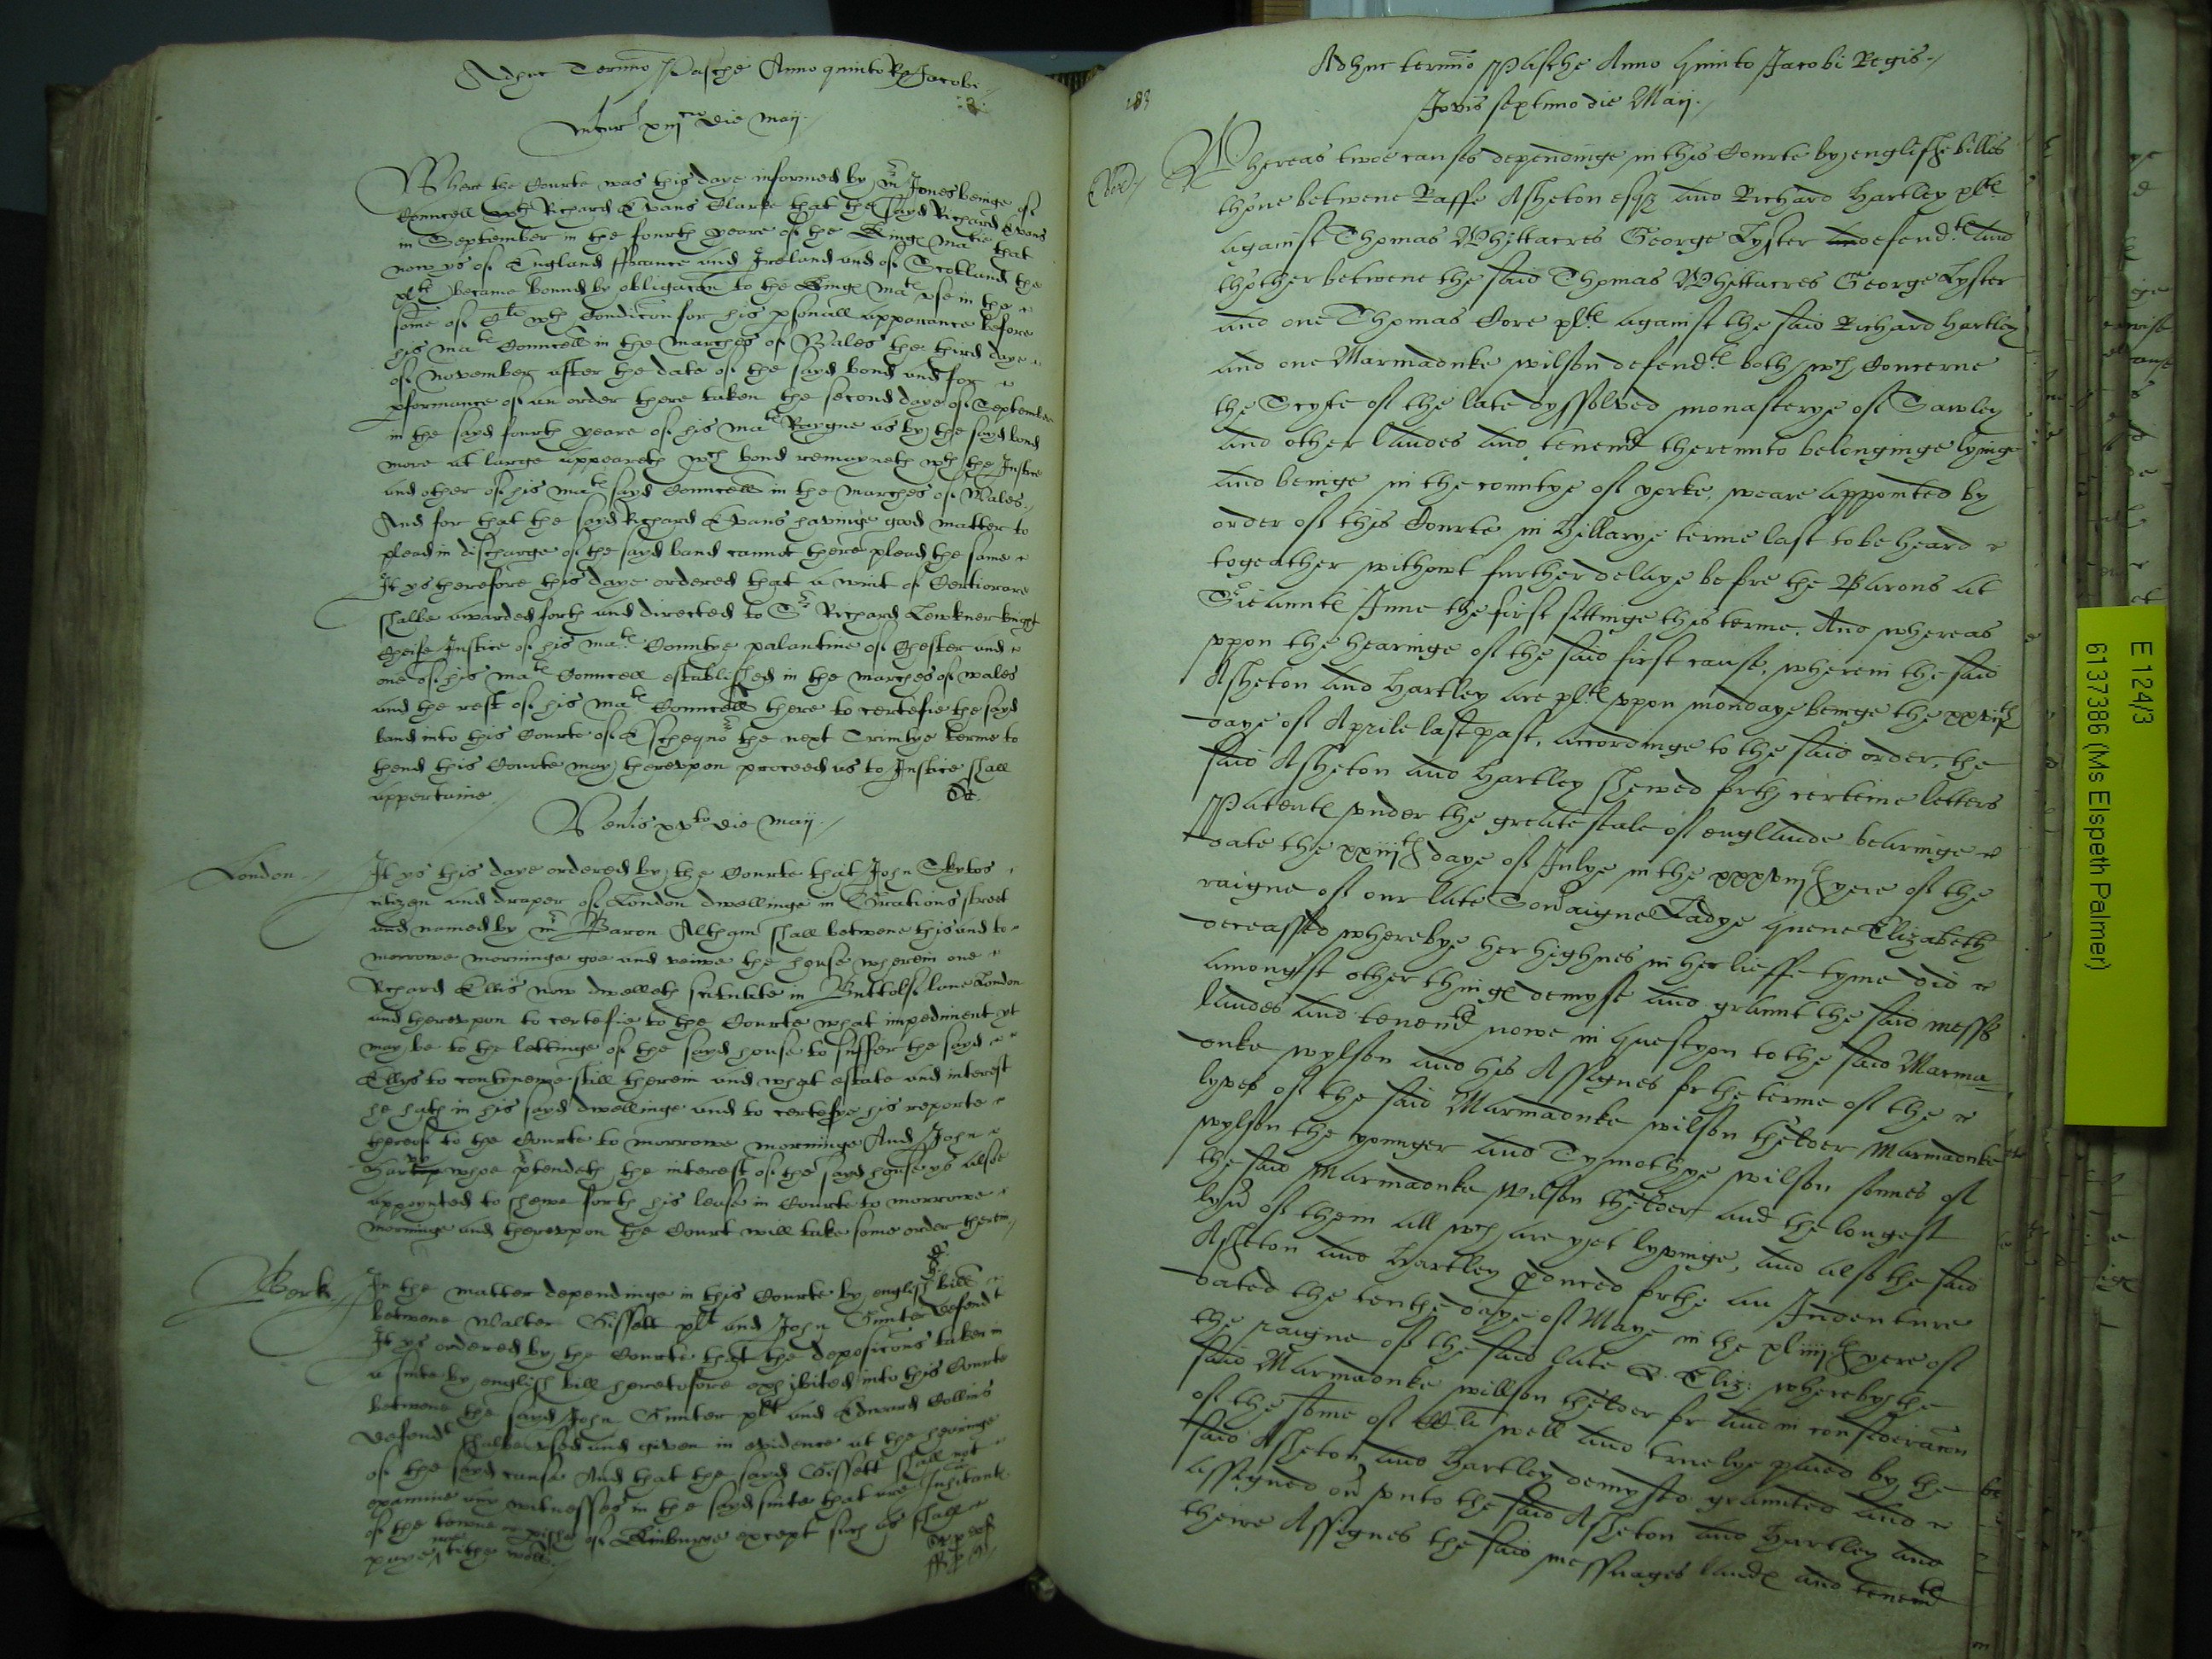 Adhuc Termino Pasche Anno quinto R Jacobi
xiiij die maij
Where the Courte was this daye informed by Mr Jones beinge of
Councell wth Richard Evans Clarke that the sayd Richard Evans
in September in the fourth yeare of the Kinge Matie that
now ys of England ffraunce and Ireland and of Scotland the
became bound by obligacon to the Kinge Mats use in the
some of wth Condicon for his psonall apparance before
his mats Councell in the marches of Wales the third daye
of November after the date of the sayd bond and for
pformance of an order there taken the second daye of September
in the sayd fourth yeare of his mats Raygne as by the sayd bond
more at large appeareth wch bond remayneth wth the Justice
and other of his mats sayd Councell in the marches of Wales
And for that the sayd Richard Evans havinge good matter to
plead in discharge of the sayd band cannot there plead the same
It ys therefore this daye ordered that a writ of Certiorare
shalbe awarded forth and directed to Sr Richard Lewkner knight
Cheife Justice of his mats Countye palantine of Chester and
one of his mats Councell established in the marches of wales
and the rest of his mats Councell there to certefie the sayd
band into this Courte of Eschequer the next Trinitye terme to
thend this Courte may therevpon proceed as to Justice shall
appertaine
Venis xvto die maij
London
It ys this daye ordered by the Courte that John Skytes
citizen and draper of London dwellinge in Gratious street
and named by mr Baron Altham shall betwene this and to
morrowe morninge goe and veiwe the house wherein one
Richard Ellis now dwelleth scituate in Buttolph lane London
and therevpon to certefie to the Courte what impediment yt
may be to the lettinge of the sayd house to suffer the sayd
Ellys to contynewe still therein and what estate and interest
he hath in his sayd dwellinge and to certefye his reporte
thereof to the Courte to morrowe morninge And John
whoe ptendeth the interest of the sayd house ys alsoe
appoynted to shewe forth his lease in Courte to morrowe
morninge and therevpon the Court will take some order therein
Berk
In the matter dependinge in this Courte by english bill
betwene Walter Bissett plt and John Gunter defendt
It ys ordered by the Courte that the deposicons taken in
a suite by english bill heretofore exhibited into this Courte
betwene the sayd John Gunter plt and Edward Collins
defendt shalbe vsed and given in evidence at the hearinge
of the sayd cause And that the sayd Bissett shall not
examine any witnesses in the sayd suite that are Inhitants
of the towne or pishe of Kinburye except such as shall
paye noe tithe wooll
183
Adhuc termino Pasche Anno quinto Jacobi Regis
Jovis septimo die Maij
Ebor
Whereas twoe causes dependinge in this Courte by englishe billes
thone betwene Raffe Asheton esqr and Richard Hartley plts
against Thomas Whittacres George Lyster defendts and
thother betwene the said Thomas Whittacres George Lyster
and one Thomas Core plts against the said Richard Hartley
and one Marmaduke wilson defendts both wch Concerne
the Scyte of the late dyssolved monasterye of Sawley
and other landes and tenemts thereunto belonginge lyinge
and beinge in the countye of yorke, weare appointed by
order of this Courte in Hillarye terme last to be heard
togeather without further delaye before the Barons at
Sieaunts Inne the first sittinge this terme. And whereas
vppon the hearinge of the said first cause, wherein the said
Asheton and Hartley are plts vppon mondaye beinge the xxvijth
daye of Aprile last past, accordinge to the said order, the
said Asheton and Hartley shewed forth certeine letters
Patents vnder the greate seale of englande bearinge
date the xxiijth daye of Julye in the xxxviijth yere of the
raigne of our late Soveraigne Ladye quene Elizabeth
deceassed wherebye her highnes in her lieffe tyme did
amongst other thinges demyse and graunt the said messges
landes and tenemts nowe in questyon to the said Marma-
duke wylson and his Assignes for the terme of the
lyves of the said Marmaduke wilson thelder Marmaduke
wylson the younger and Tymothye wilson sonnes of
the said Marmaduke wilson thelder and the longest
lyver of them all wch are yet lyvinge, and also the said
Asheton and Hartley pduced forthe an Indenture
dated the tenthe daye of Maye in the xliiijth yere of
the raigne of the said late Q. Eliz: whereby the
said Marmaduke willson thelder for and in consideracon
of the some of well and truelye paied by the
said Asheton and Hartley demysed graunted and
assigned over vnto the said Asheton and Hartley and
theire Assignes the said messuages lands and tenemts
E 124/3
6137386 (Ms Elspeth Palmer)